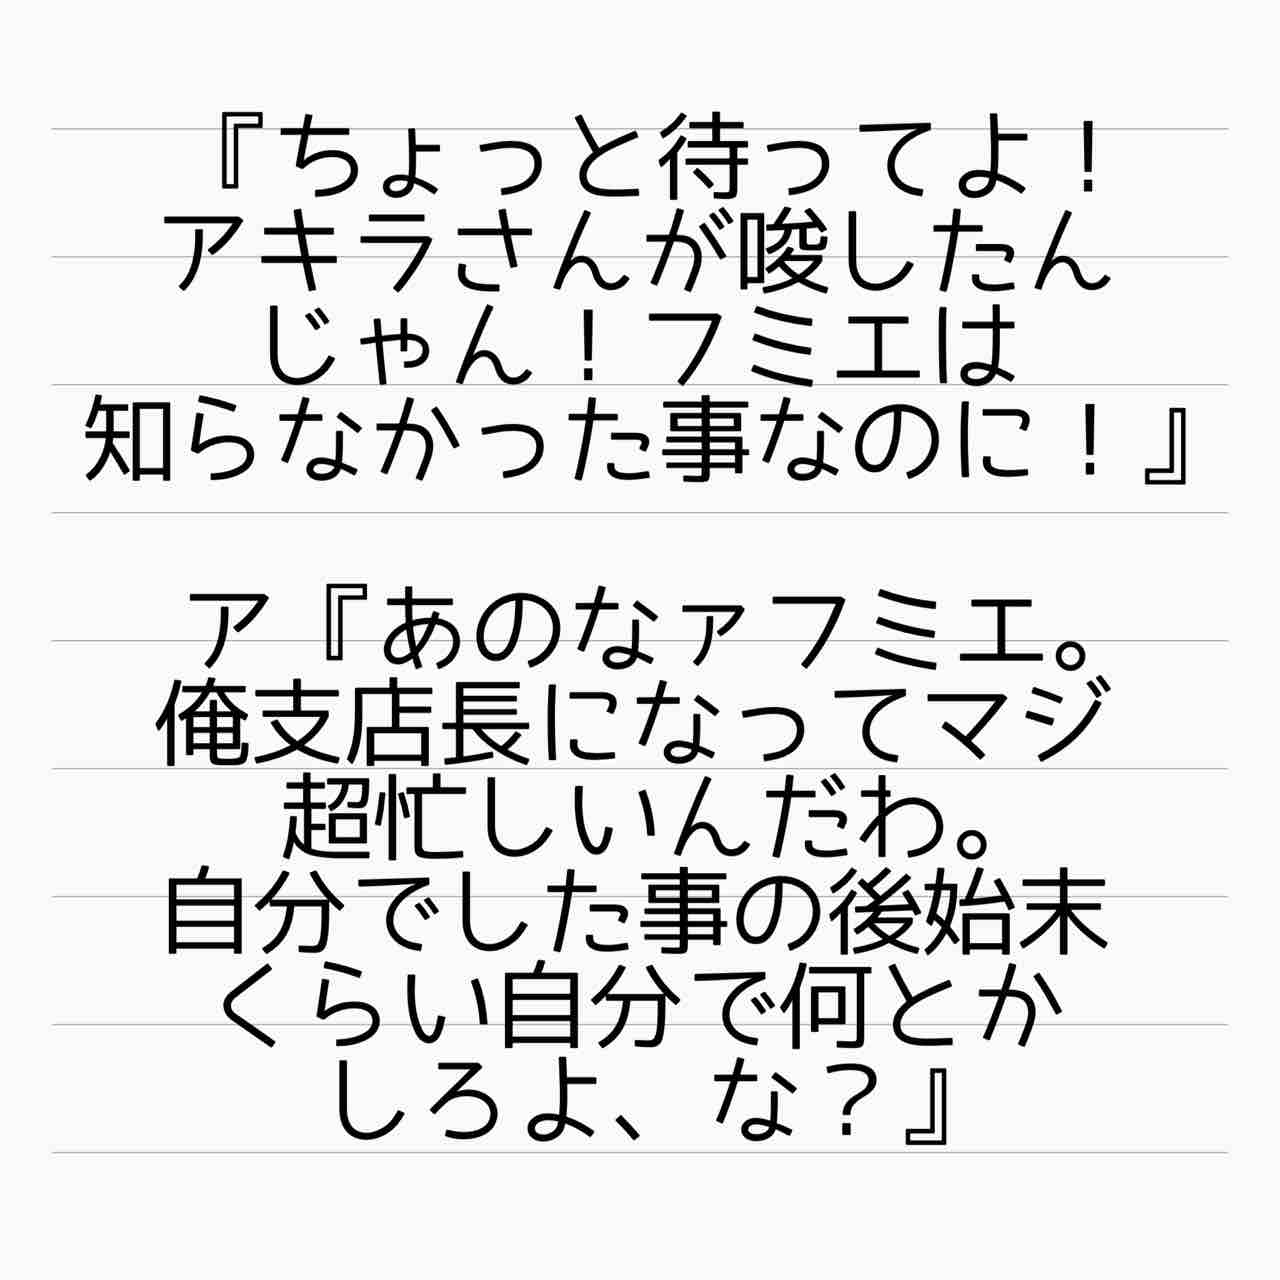 『ちょっと待ってよ！
アキラさんが唆したん
じゃん！フミエは
知らなかった事なのに！』
ア『あのなァフミエ。
俺支店長になってマジ
超忙しいんだわ。
自分でした事の後始末
くらい自分で何とか
しろよ、な？』